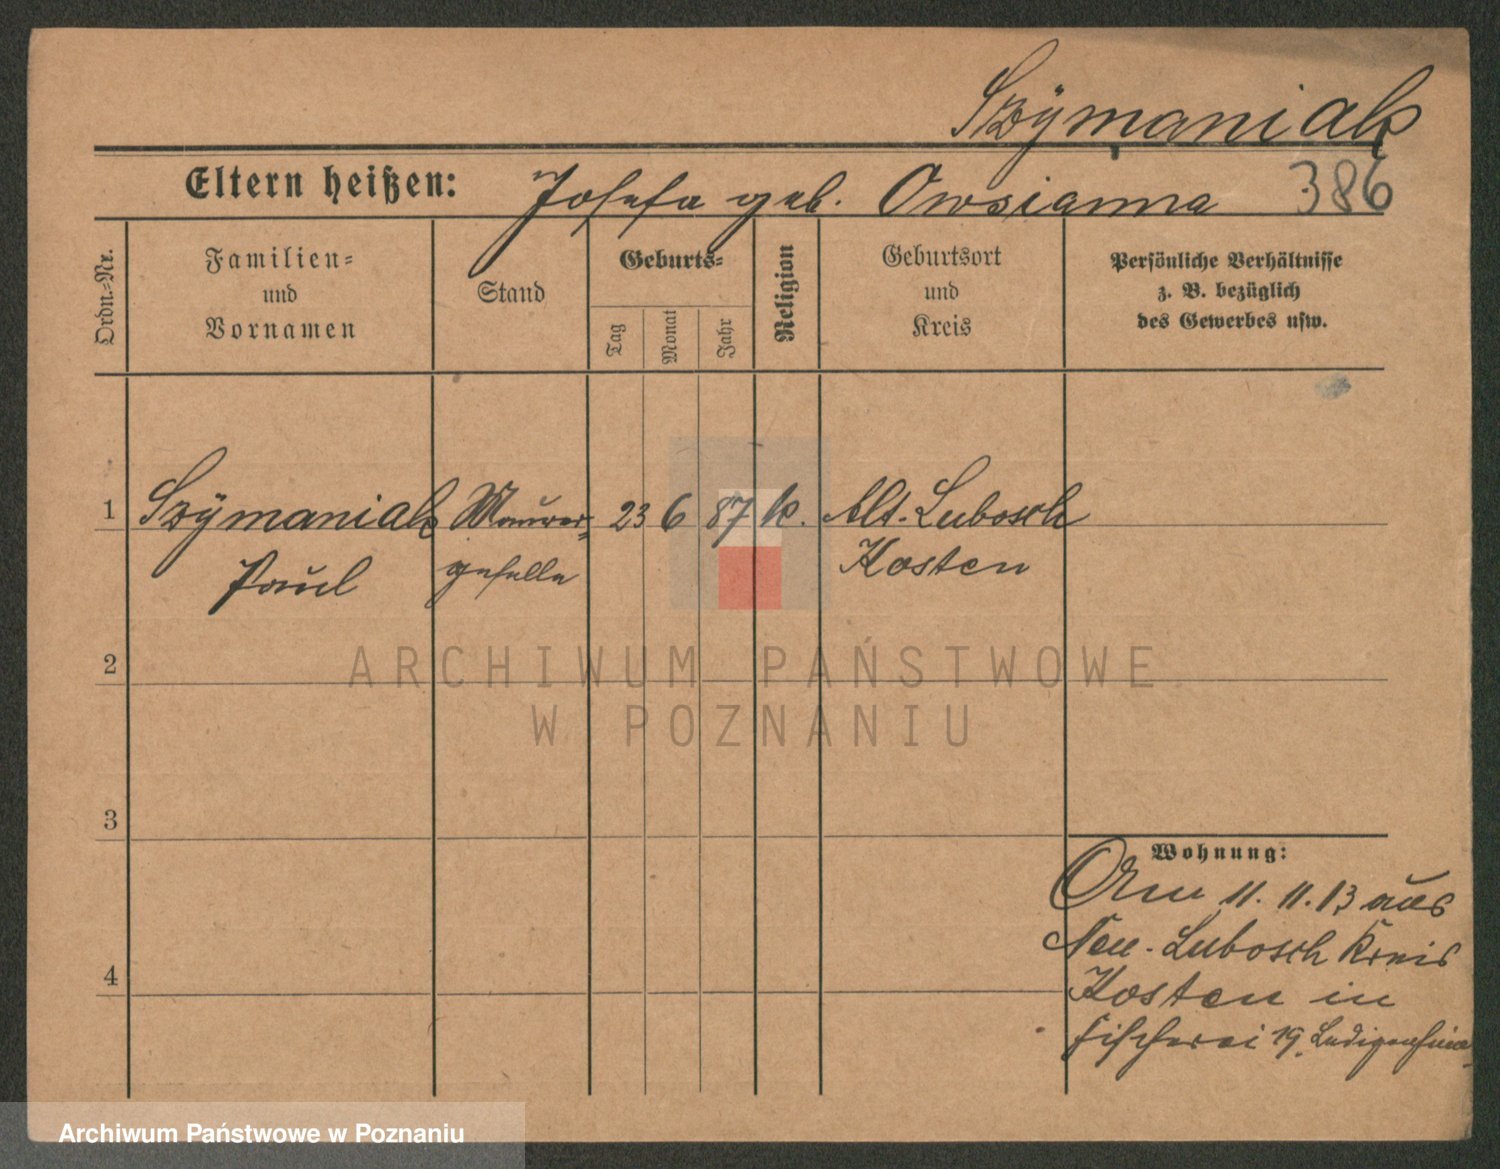 Szÿmaniak
Eltern heißen: Josefa geb. Owsianna 386
Ordn.-Nr.
Familien-
und
Vornamen
Stand
Geburts-
Tag
Monat
Jahr
Religion
Geburtsort
und
Kreis
Persönliche Verhältnisse
z. B. bezüglich
des Gewerbes usw.
1 Szÿmaniak Maurer- 23 6 87 k. Alt-Lubosch
Paul geselle Kosten
2
3
4
Wohnung:
Am 11.11.13 aus
Neu-Lubosch Kreis
Kosten in
Fischerei 19.
ARCHIWUM PAŃSTWOWE
W POZNANIU
Archiwum Państwowe w Poznaniu